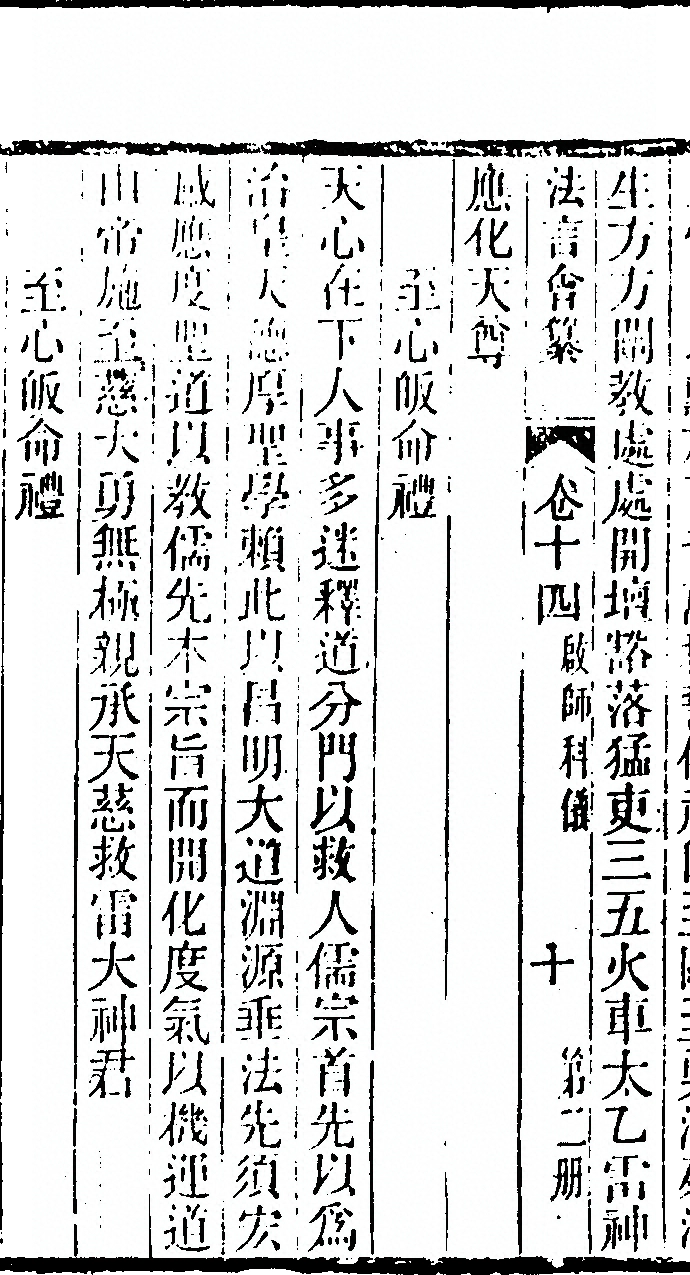 生方方闡教處處開壇豁落猛吏三五火車太乙雷神
法言會纂 卷十四 啟師科儀 十 第二册
應化天尊
至心皈命禮
天心在下人事多迷釋道分門以救人儒宗首先以爲
治皇天德厚聖學賴此以昌明大道淵源垂法先須宏
感應度聖道以教儒先本宗旨而開化度氣以機運道
由帝施至慈大勇無極親承天慈救雷大神君
至心皈命禮